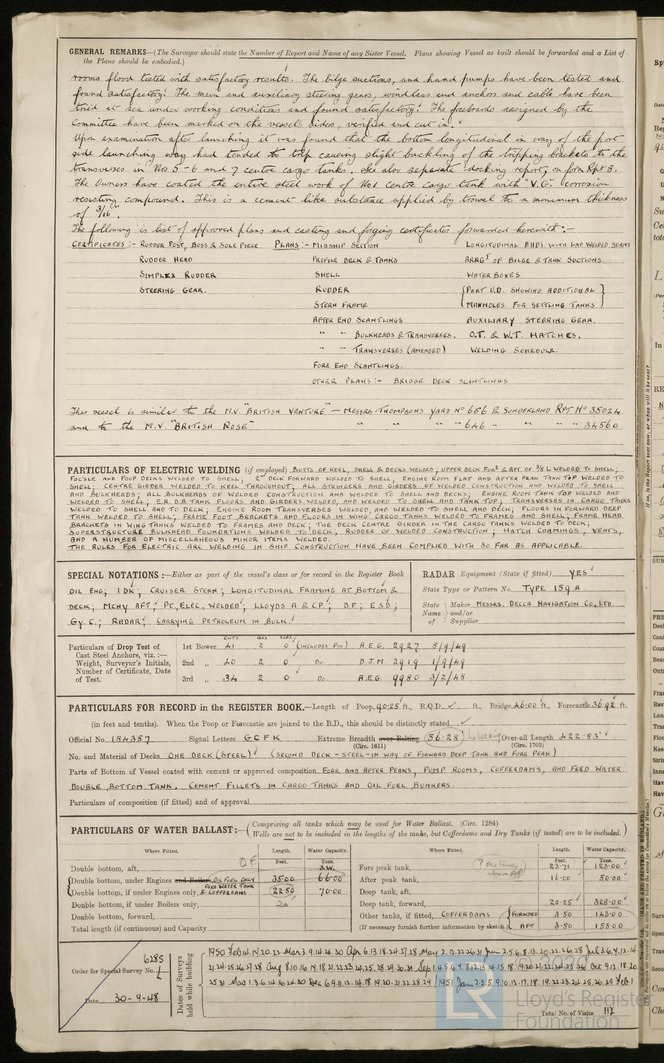 GENERAL REMARKS—(The Surveyor should state the Number of Report and Name of any Sister Vessel. Plans showing Vessel as built should be forwarded and a List of
the Plans should be embodied.)
rooms flood tested with satisfactory results. The bilge suctions, and hand pumps have been tested and
found satisfactory. The main and auxiliary steering gears, windlass and anchor and cable have been
tried at sea under working conditions and found satisfactory. The freeboards assigned by the
Committee have been marked on the vessel's sides, verified and cut in.
Upon examination after launching it was found that the bottom longitudinal in way of the port
side launching way had tended to trip causing slight buckling of the tripping brackets to the
transverses in Nos 5-6 and 7 centre cargo tanks. See also separate docking report, on form Rpt 8.
The Owners have coated the entire steel work of No1 centre cargo tank with "V.C." corrosion
resisting compound. This is a cement like substance applied by trowel to a minimum thickness
of 3/16".
The following is list of approved plans and casting and forging certificates forwarded herewith:-
CERTIFICATES:- RUDDER POST, BOSS & SOLE PIECE. PLANS:- MIDSHIP SECTION LONGITUDINAL BHDS WITH LAP WELDED SEAMS
RUDDER HEAD PROFILE DECK & TANKS ARRGT OF BILGE & TANK SUCTIONS.
SIMPLEX RUDDER SHELL WATER BOXES
STEERING GEAR. RUDDER {PART I.D. SHOWING ADDITIONAL}
STERN FRAME {MANHOLES FOR SETTLING TANKS}
AFTER END SCANTLINGS AUXILIARY STEERING GEAR.
" " BULKHEADS & TRANSVERSES. O.T. & W.T. HATCHES.
" " TRANSVERSES (AMENDED) WELDING SCHEDULE.
FORE END SCANTLINGS.
OTHER PLANS:- BRIDGE DECK SCANTLINGS
This vessel is similar to the M.V. "BRITISH VENTURE" — MESSRS THOMPSONS YARD No 656 & SUNDERLAND RPT No 35024
and to the M.V. "BRITISH ROSE" " " " 646 " " " 34560
PARTICULARS OF ELECTRIC WELDING (if employed) BUTTS OF KEEL, SHELL & DECKS WELDED; UPPER DECK FORD & AFT OF L WELDED TO SHELL;
FOC'SLE AND POOP DECKS WELDED TO SHELL; 2ND DECK FORWARD WELDED TO SHELL; ENGINE ROOM FLAT AND AFTER PEAK TANK TOP WELDED TO
SHELL; CENTRE GIRDER WELDED TO KEEL THROUGHOUT; ALL STRINGERS AND GIRDERS OF WELDED CONSTRUCTION AND WELDED TO SHELL
AND BULKHEADS; ALL BULKHEADS OF WELDED CONSTRUCTION AND WELDED TO SHELL AND DECKS; ENGINE ROOM TANK TOP WELDED AND
WELDED TO SHELL; E.R. D.B. TANK FLOORS AND GIRDERS WELDED, AND WELDED TO SHELL AND TANK TOP; TRANSVERSES IN CARGO TANKS
WELDED TO SHELL AND TO DECK; ENGINE ROOM TRANSVERSES WELDED, AND WELDED TO SHELL AND DECK; FLOORS IN FORWARD DEEP
TANK WELDED TO SHELL; FRAME FOOT BRACKETS AND FLOORS IN WING CARGO TANKS WELDED TO FRAMES AND SHELL; FRAME HEAD
BRACKETS IN WING TANKS WELDED TO FRAMES AND DECK; THE DECK CENTRE GIRDER IN THE CARGO TANKS WELDED TO DECK;
SUPERSTRUCTURE BULKHEAD FOUNDATIONS WELDED TO DECK, RUDDER OF WELDED CONSTRUCTION; HATCH COAMINGS, VENTS,
AND A NUMBER OF MISCELLANEOUS MINOR ITEMS WELDED.
THE RULES FOR ELECTRIC ARC WELDING IN SHIP CONSTRUCTION HAVE BEEN COMPLIED WITH SO FAR AS APPLICABLE.
SPECIAL NOTATIONS:—Either as part of the vessel's class or for record in the Register Book
OIL ENG; 1 DK; CRUISER STERN; LONGITUDINAL FRAMING AT BOTTOM &
DECK; MCHY AFT; PT, ELEC, WELDED; LLOYDS A & CP; D.F.; E.S.D.;
GY.C.; RADAR; CARRYING PETROLEUM IN BULK.
RADAR Equipment (State if fitted) YES
State Type or Pattern No. TYPE 159 A
State Name and/or of {Maker MESSRS. DECCA NAVIGATION CO, LTD.
Supplier
Particulars of Drop Test of
Cast Steel Anchors, viz.:—
Weight, Surveyor's Initials,
Number of Certificate, Date
of Test.
CWTS QRS LBS
1st Bower 41 2 0 (INCLUDES PIN) A.E.G. 2927 8/9/49
2nd " 40 2 0 Do. D.J.M 2919 1/9/49
3rd " 34 2 0 Do. A.E.G. 9980 3/2/48
PARTICULARS FOR RECORD in the REGISTER BOOK.—Length of Poop, 90.25 ft., R.Q.D. ft., Bridge, 46.00 ft., Forecastle, 36.92 ft.
(in feet and tenths). When the Poop or Forecastle are joined to the B.D., this should be distinctly stated
Official No. 184357 Signal Letters, GCFK Extreme Breadth over Belting (56.28) Over-all Length 422.83'
(Circ. 1611) (Circ. 1703)
No. and Material of Decks, ONE DECK (STEEL) (SECOND DECK - STEEL - IN WAY OF FORWARD DEEP TANK AND FORE PEAK)
Parts of Bottom of Vessel coated with cement or approved composition FORE AND AFTER PEAKS, PUMP ROOMS, COFFERDAMS, AND FEED WATER
DOUBLE BOTTOM TANK. CEMENT FILLETS IN CARGO TANKS AND OIL FUEL BUNKERS.
Particulars of composition (if fitted) and of approval
PARTICULARS OF WATER BALLAST:—(Comprising all tanks which may be used for Water Ballast. (Circ. 1284)
Wells are not to be included in the lengths of the tanks, but Cofferdams and Dry Tanks (if tested) are to be included.)
Where Fitted. Length. Water Capacity. Where Fitted. Length. Water Capacity.
Feet. Tons. Feet. Tons.
Double bottom, aft, S.W. Fore peak tank, 23.71 123.00
Double bottom, under Engines and Boilers, OIL FUEL ONLY 35.00 66.00 After peak tank, 16.00 50.00
Double bottom, if under Engines only, FEED WATER TANK & COFFERDAMS 22.50 70.00 Deep tank, aft,
Double bottom, if under Boilers only, 20 Deep tank, forward, 20.25 328.00
Double bottom, forward, Other tanks, if fitted, COFFERDAMS {FORWARD 3.50 143.00
Total length (if continuous) and Capacity (If necessary furnish further information by sketch.) {AFT 3.50 155.00
Order for Special Survey No. 6285
Date 30-9-48
Dates of Surveys held while building
Total No. of Visits 112
© 2020
LR
Lloyd's Register
Foundation